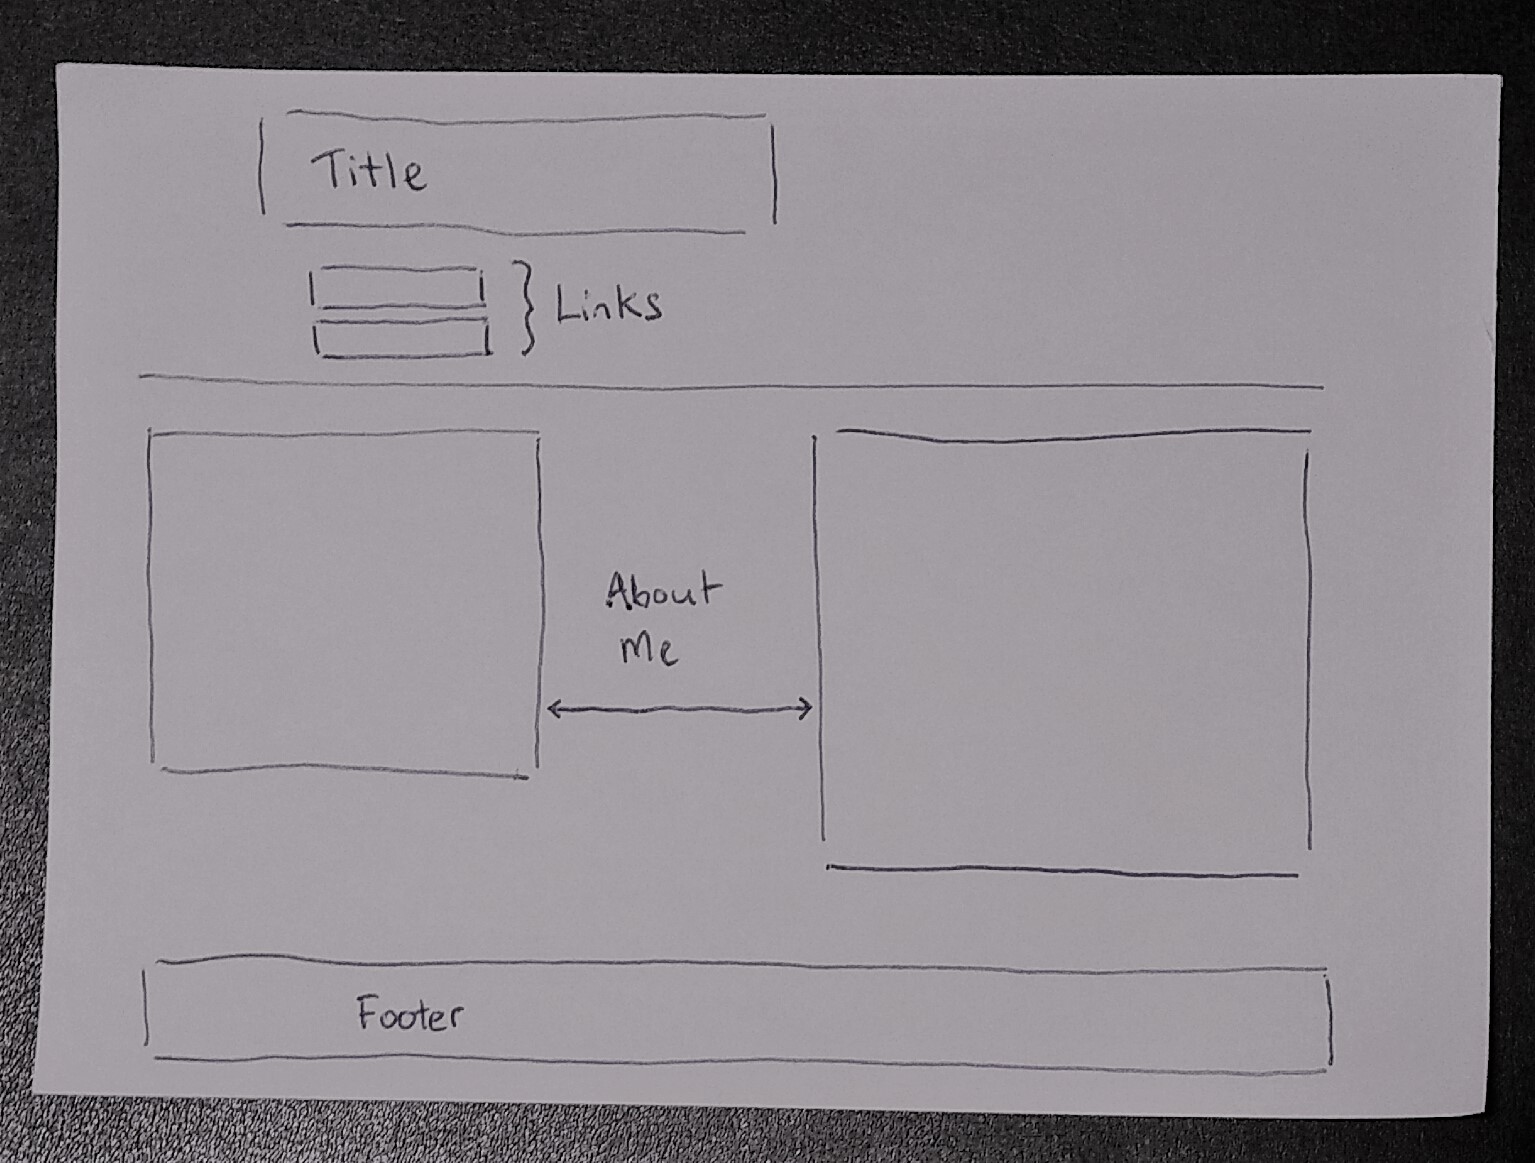 Title
Links
About
Me
Footer